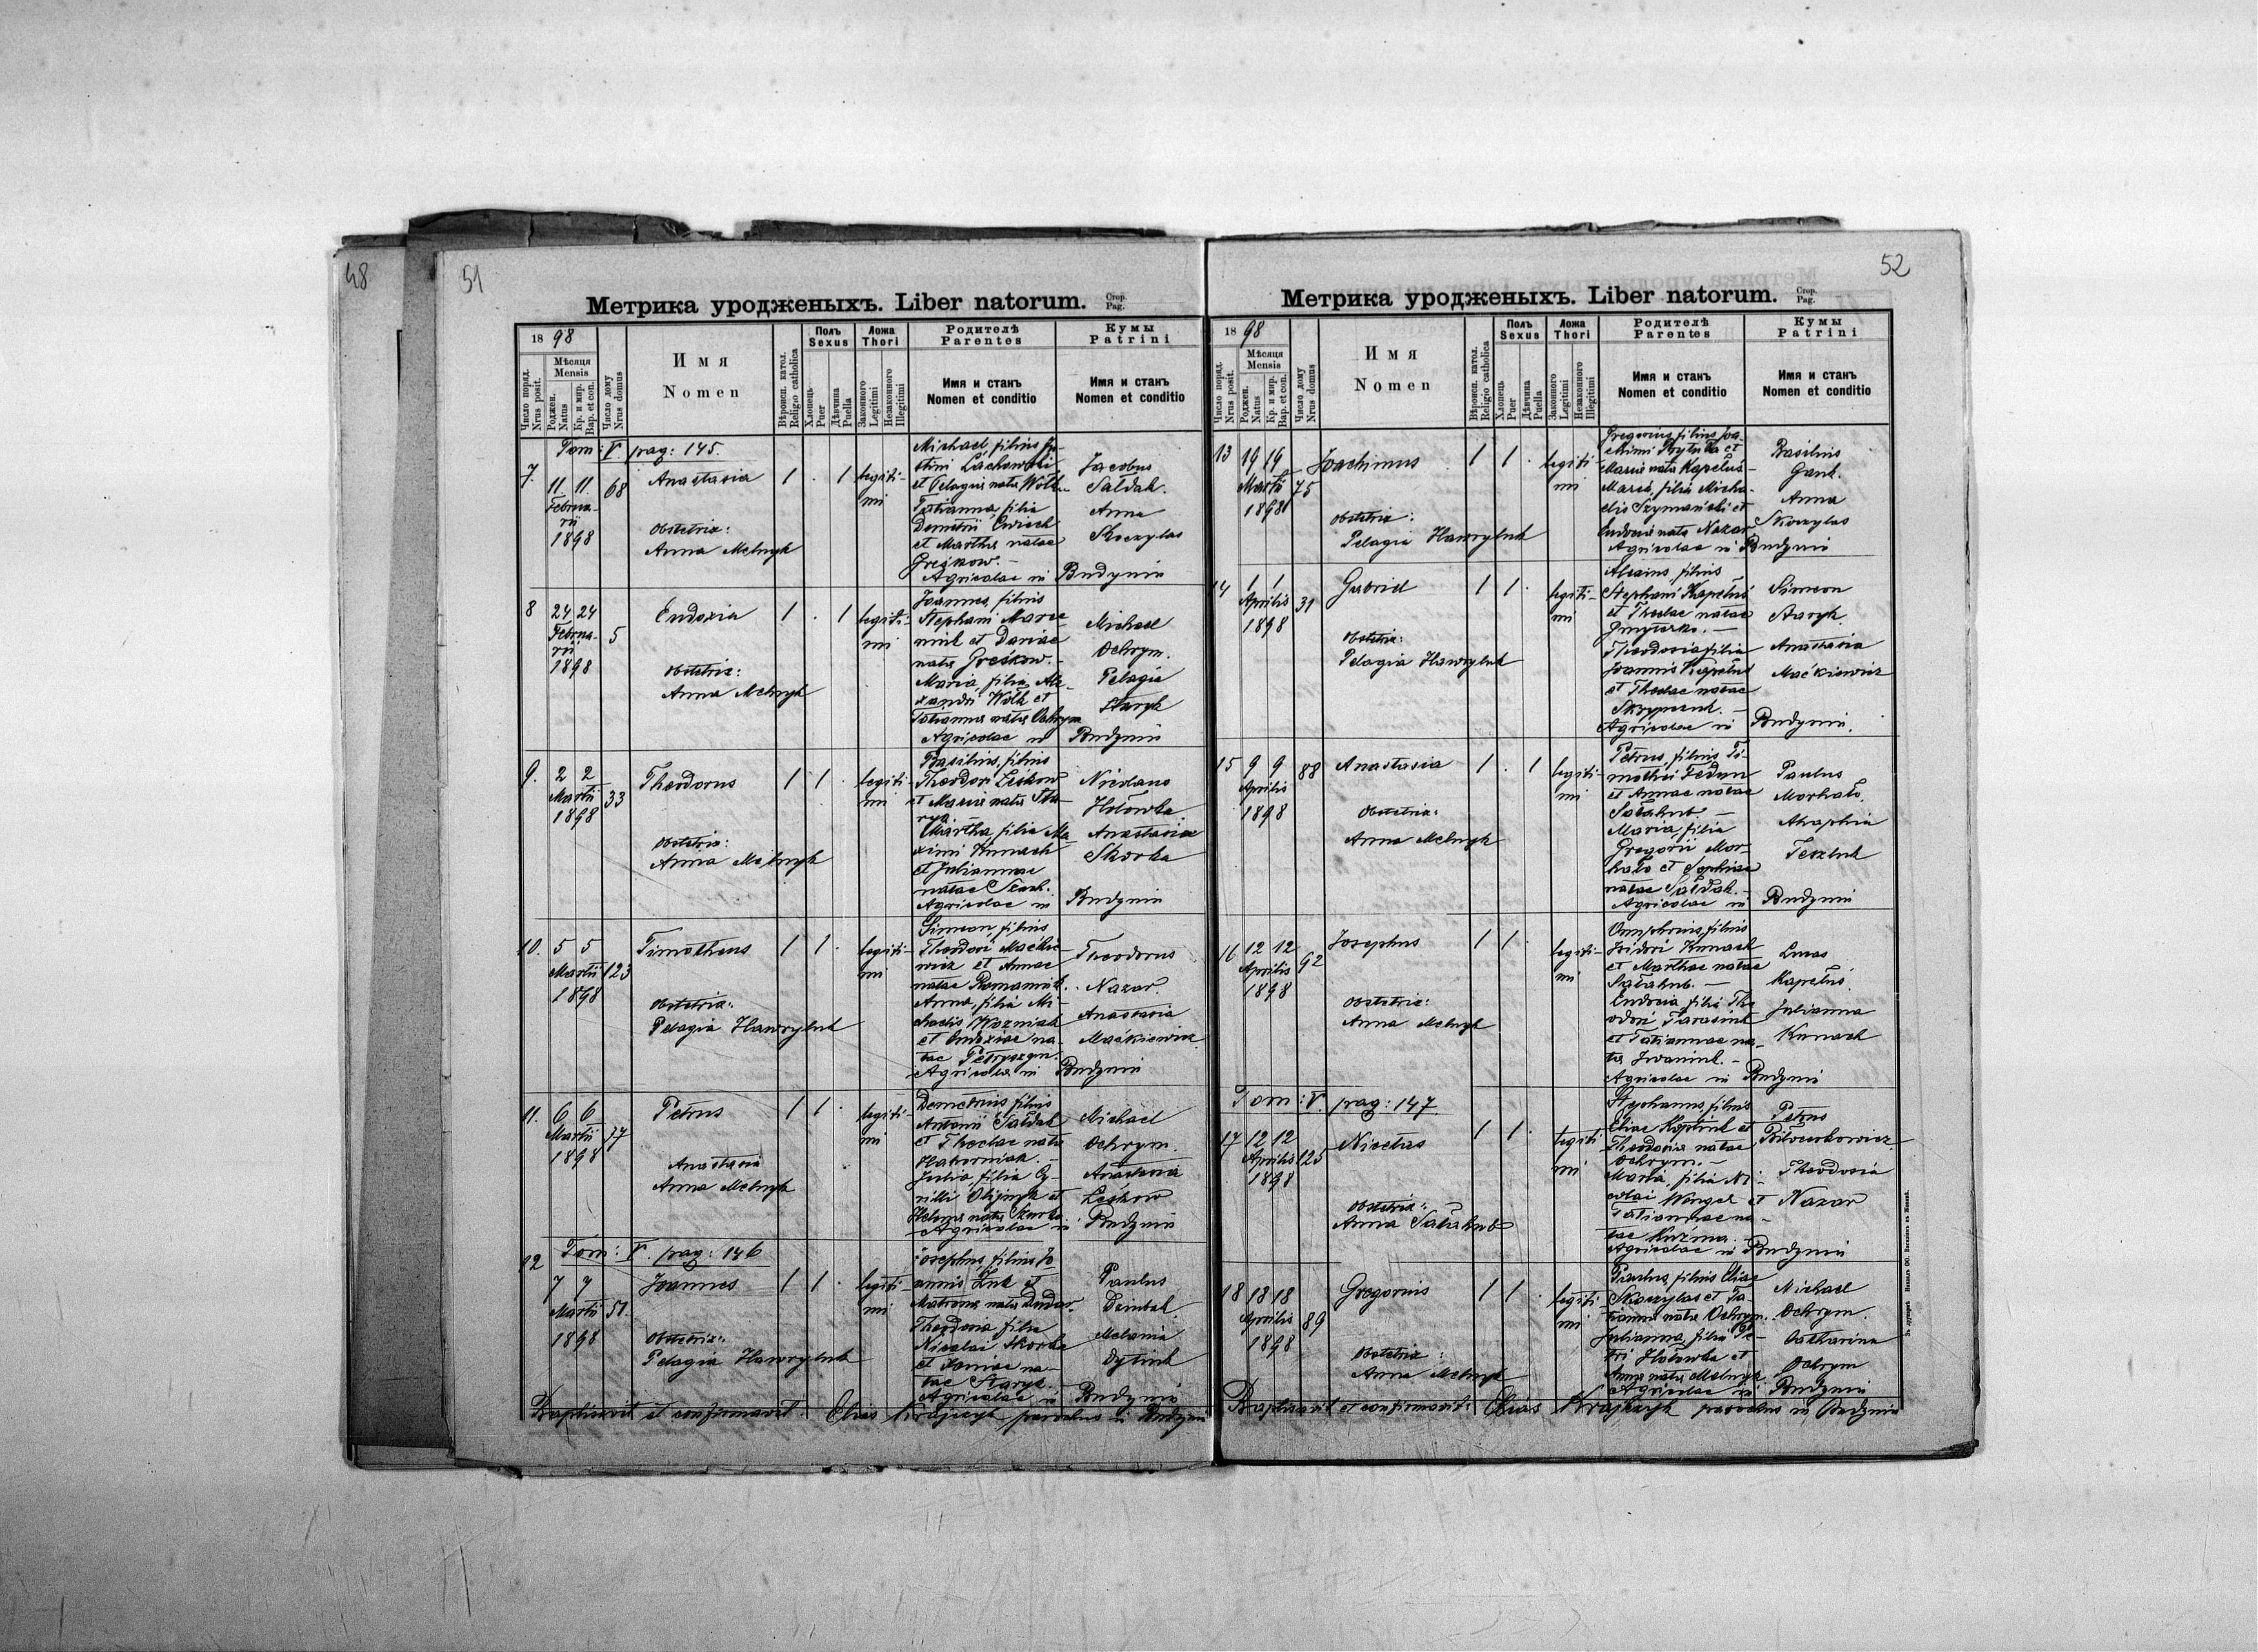 48
51
Метрика уродженыхъ. Liber natorum. Стор. Pag.
18 98
Мѣсяця
Mensis
Число поряд.
Nrus posit.
Роджен.
Natus
Кр. и мир.
Bap. et con.
Число дому
Nrus domus
Имя
Nomen
Вѣроисп. катол.
Religio catholica
Полъ
Sexus
Хлопець
Puer
Дѣвчина
Puella
Ложа
Thori
Законного
Legitimi
Незаконного
Illegitimi
Родителѣ
Parentes
Имя и станъ
Nomen et conditio
Кумы
Patrini
Имя и станъ
Nomen et conditio
Tom: V. pag: 145.
7. 11 11 Februarii 1898 68
Anastasia
obstetrix:
Anna Melnyk
1 . 1 legitimi
Michael, filius
Lachowski
et Pelagiae natae Wolk
Tatianna, filia
Demetrii
et Marthae natae
Greśkow.
Agricolae in Budynin
Jacobus
Sałdak.
Anna
Skoczylas
8 24 24 Februarii 1898 5
Eudoxia
obstetrix:
Anna Melnyk
1 . 1 legitimi
Joannes, filius
Stephani
et Dariae
natae Greśkow.
Maria, filia Alexandri Wolk et
Tatiannae natae Ochrym
Agricolae in Budynin
Michael
Ochrym.
Pelagia
Staryk
9. 2 2 Martii 1898 33
Theodorus
obstetrix:
Anna Melnyk
1 1 . legitimi
Basilius, filius
Theodori Leskow
et Mariae natae Staryk.
Martha, filia Maximi Kunach
et Juliannae
natae
Agricolae in Budynin
Nicolaus
Hołowka.
Anastasia
Skorba
10. 5 5 Martii 1898 123
Timotheus
obstetrix:
Pelagia Hawryluk
1 1 . legitimi
Simeon, filius
Theodori Mackiewicz et Annae
natae Romaniuk.
Anna, filia Michaelis Woźniak
et Eudoxiae natae Petryszyn.
Agricolae in Budynin
Theodorus
Nazar.
Anastasia
Maćkiewicz
11. 6 6 Martii 1898 77
Petrus
Anastasia
Anna Melnyk
1 1 . legitimi
Demetrius, filius
Antonii Sałdak
et Theclae natae
Julia, filia Cyrilli Olijnyk et
Helenae natae Skorba
Agricolae in Budynin
Michael
Ochrym.
Anastasia
Leśkow
Tom: V. pag: 146
12 7 7 Martii 1898 51.
Joannes
obstetrix:
Pelagia Hawryluk
1 1 . legitimi
Josephus, filius Joannis Żuk et
Matronae natae
Theodosia filia
Nicolai Skorba
et natae Staryk.
Agricolae in Budynin
Paulus
Melania
Dytiuk
Baptisavit et confirmavit: Elias Krajczyk parochus in Budynin
52
Метрика уродженыхъ. Liber natorum. Стор. Pag.
18 98
Мѣсяця
Mensis
Число поряд.
Nrus posit.
Роджен.
Natus
Кр. и мир.
Bap. et con.
Число дому
Nrus domus
Имя
Nomen
Вѣроисп. катол.
Religio catholica
Полъ
Sexus
Хлопець
Puer
Дѣвчина
Puella
Ложа
Thori
Законного
Legitimi
Незаконного
Illegitimi
Родителѣ
Parentes
Имя и станъ
Nomen et conditio
Кумы
Patrini
Имя и станъ
Nomen et conditio
13 19 19 Martii 1898 75
Joachimus
obstetrix:
Pelagia Hawryluk
1 1 . legitimi
Gregorius, filius Joachimi et
Mariae natae Kapeluś
Maria, filia Michaelis Szymański et
Eudoxiae natae Nazar
Agricolae in Budynin
Basilius
Gauk.
Anna
Skoczylas
14 1 1 Aprilis 1898 31
Gabriel
obstetrix:
Pelagia Hawryluk
1 1 . legitimi
Alexius, filius
Stephani Kapeluś
et Theclae natae
Theodosia filia
Joannis Kapeluś
et Theclae natae
Agricolae in Budynin.
Simeon
Staryk.
Anastasia
Maćkiewicz
15 9 9 Aprilis 1898 88
Anastasia
obstetrix:
Anna Melnyk
1 . 1 legitimi
Petrus, filius Timothei Fedun
et Annae natae
Sałahub.
Maria, filia
Gregorii Morhało et Sophiae
natae Sałdak.
Agricolae in Budynin
Paulus
Morhało.
Ahaphia
Teszluk
16 12 12 Aprilis 1898 92
Josephus
obstetrix:
Anna Melnyk
1 1 . legitimi
Onuphrius, filius
Isidori Kunach
et Marthae natae
Sałahub.
Eudocia, filia Theodori Tarasiuk
et Tatiannae natae Iwaniuk.
Agricolae in Budynin
Lucas
Kapeluś.
Julianna
Kunach
Tom: V. pag: 147
17 12 12 Aprilis 1898 125
Nicetas
obstetrix:
Anna Sałahub
1 1 . legitimi
Stephanus, filius
Eliae et
Theodosiae natae
Ochrym.
Maria, filia Nicolai et
Tatiannae natae Kuźma.
Agricolae in Budynin
Petrus
Theodosia
Nazar
18 18 18 Aprilis 1898 89
Gregorius
obstetrix:
Anna Melnyk
1 1 . legitimi
Paulus, filius Eliae
Skoczylas et Tatiannae natae Ochrym.
Julianna, filia Petri Hołowka et
Annae natae Melnyk
Agricolae in Budynin
Michael
Ochrym.
Catharina
Ochrym
Baptisavit et confirmavit: Elias Krajczyk parochus in Budynin